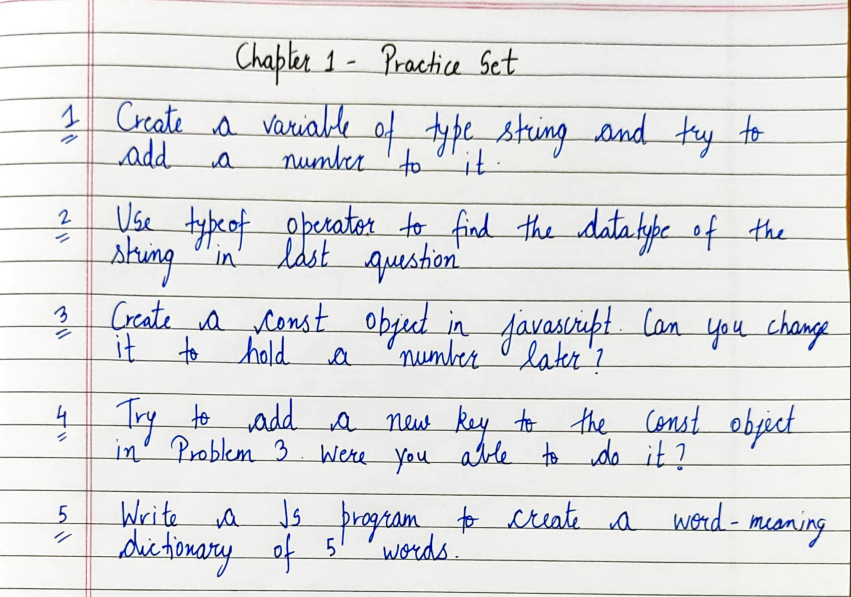 Chapter 1 - Practice Set
1 Create a variable of type string and try to
add a number to it.
2 Use typeof operator to find the datatype of the
string in last question
3 Create a const object in javascript. Can you change
it to hold a number later?
4 Try to add a new key to the const object
in Problem 3. Were you able to do it?
5 Write a Js program to create a word-meaning
dictionary of 5 words.